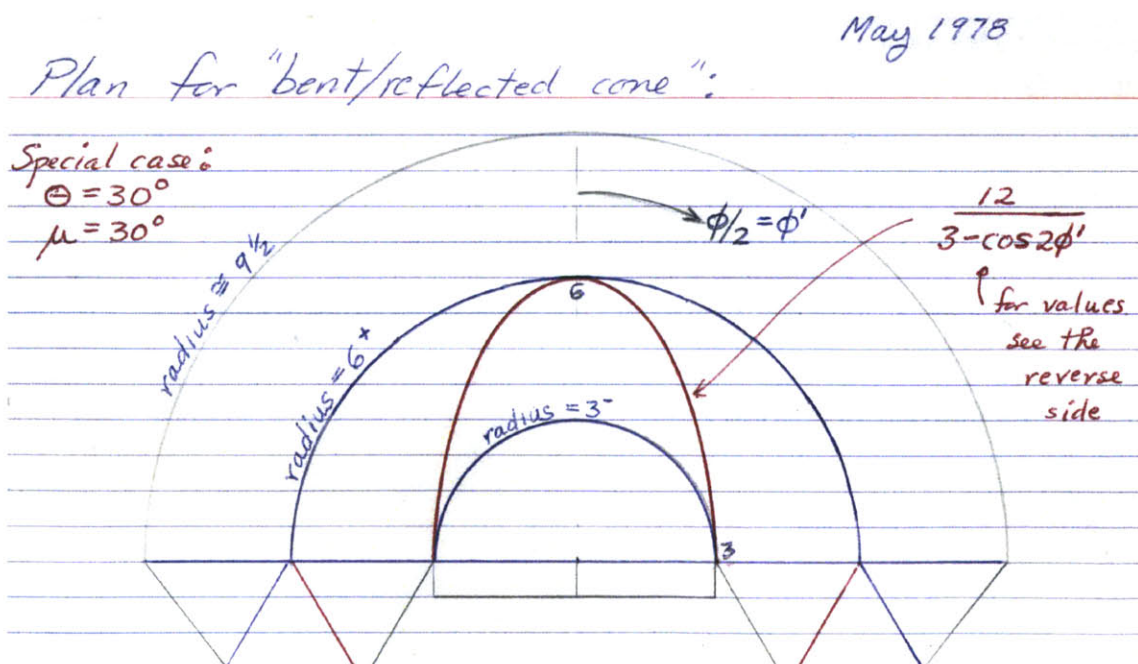 May 1978
Plan for "bent/reflected cone":
Special case:
Θ = 30°
μ = 30°
ϕ/2 = ϕ'
12
3-cos2ϕ'
for values
see the
reverse
side
radius ≅ 9 1/2
radius = 6⁺
6
radius = 3⁻
3